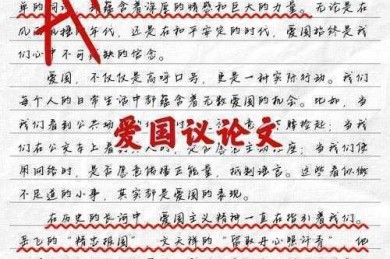 单的词汇，却蕴含着深厚的情感和巨大的力量。无论是在
年代，还是在和平安定的时代，爱国始终是我
们心中不可 缺的信念。
爱国，不仅仅是高呼口号，更是一种实际行动。我们
每个人的日常生活中都蕴含着无数爱国的机会。比如，当
我们看到公共场 随手捡起；当我
爱国议论文
们在公交车上看 主动让座；当我们使
用网络时，是否愿意传播正能量，抵制谣言。这些看似微
不足道的小事，其实都是爱国的表现。
在历史的长河中，爱国主义精神一直在指引着我们。
岳飞的“精忠报国”，文天祥的“留取丹心照汗青”，他